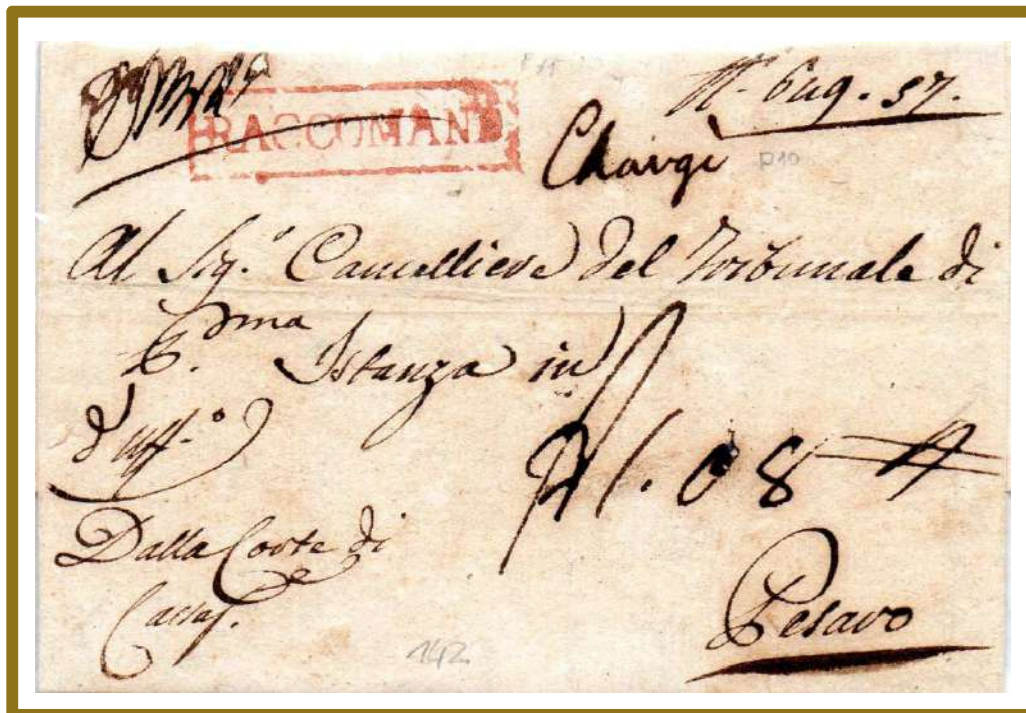 RACCOMAND
Chargé
Al Sig.º Cancelliere del Tribunale di
P.ma Istanza in
d'Uff.º
1.08
Dalla Corte di
Cassaz.
Pesaro
142